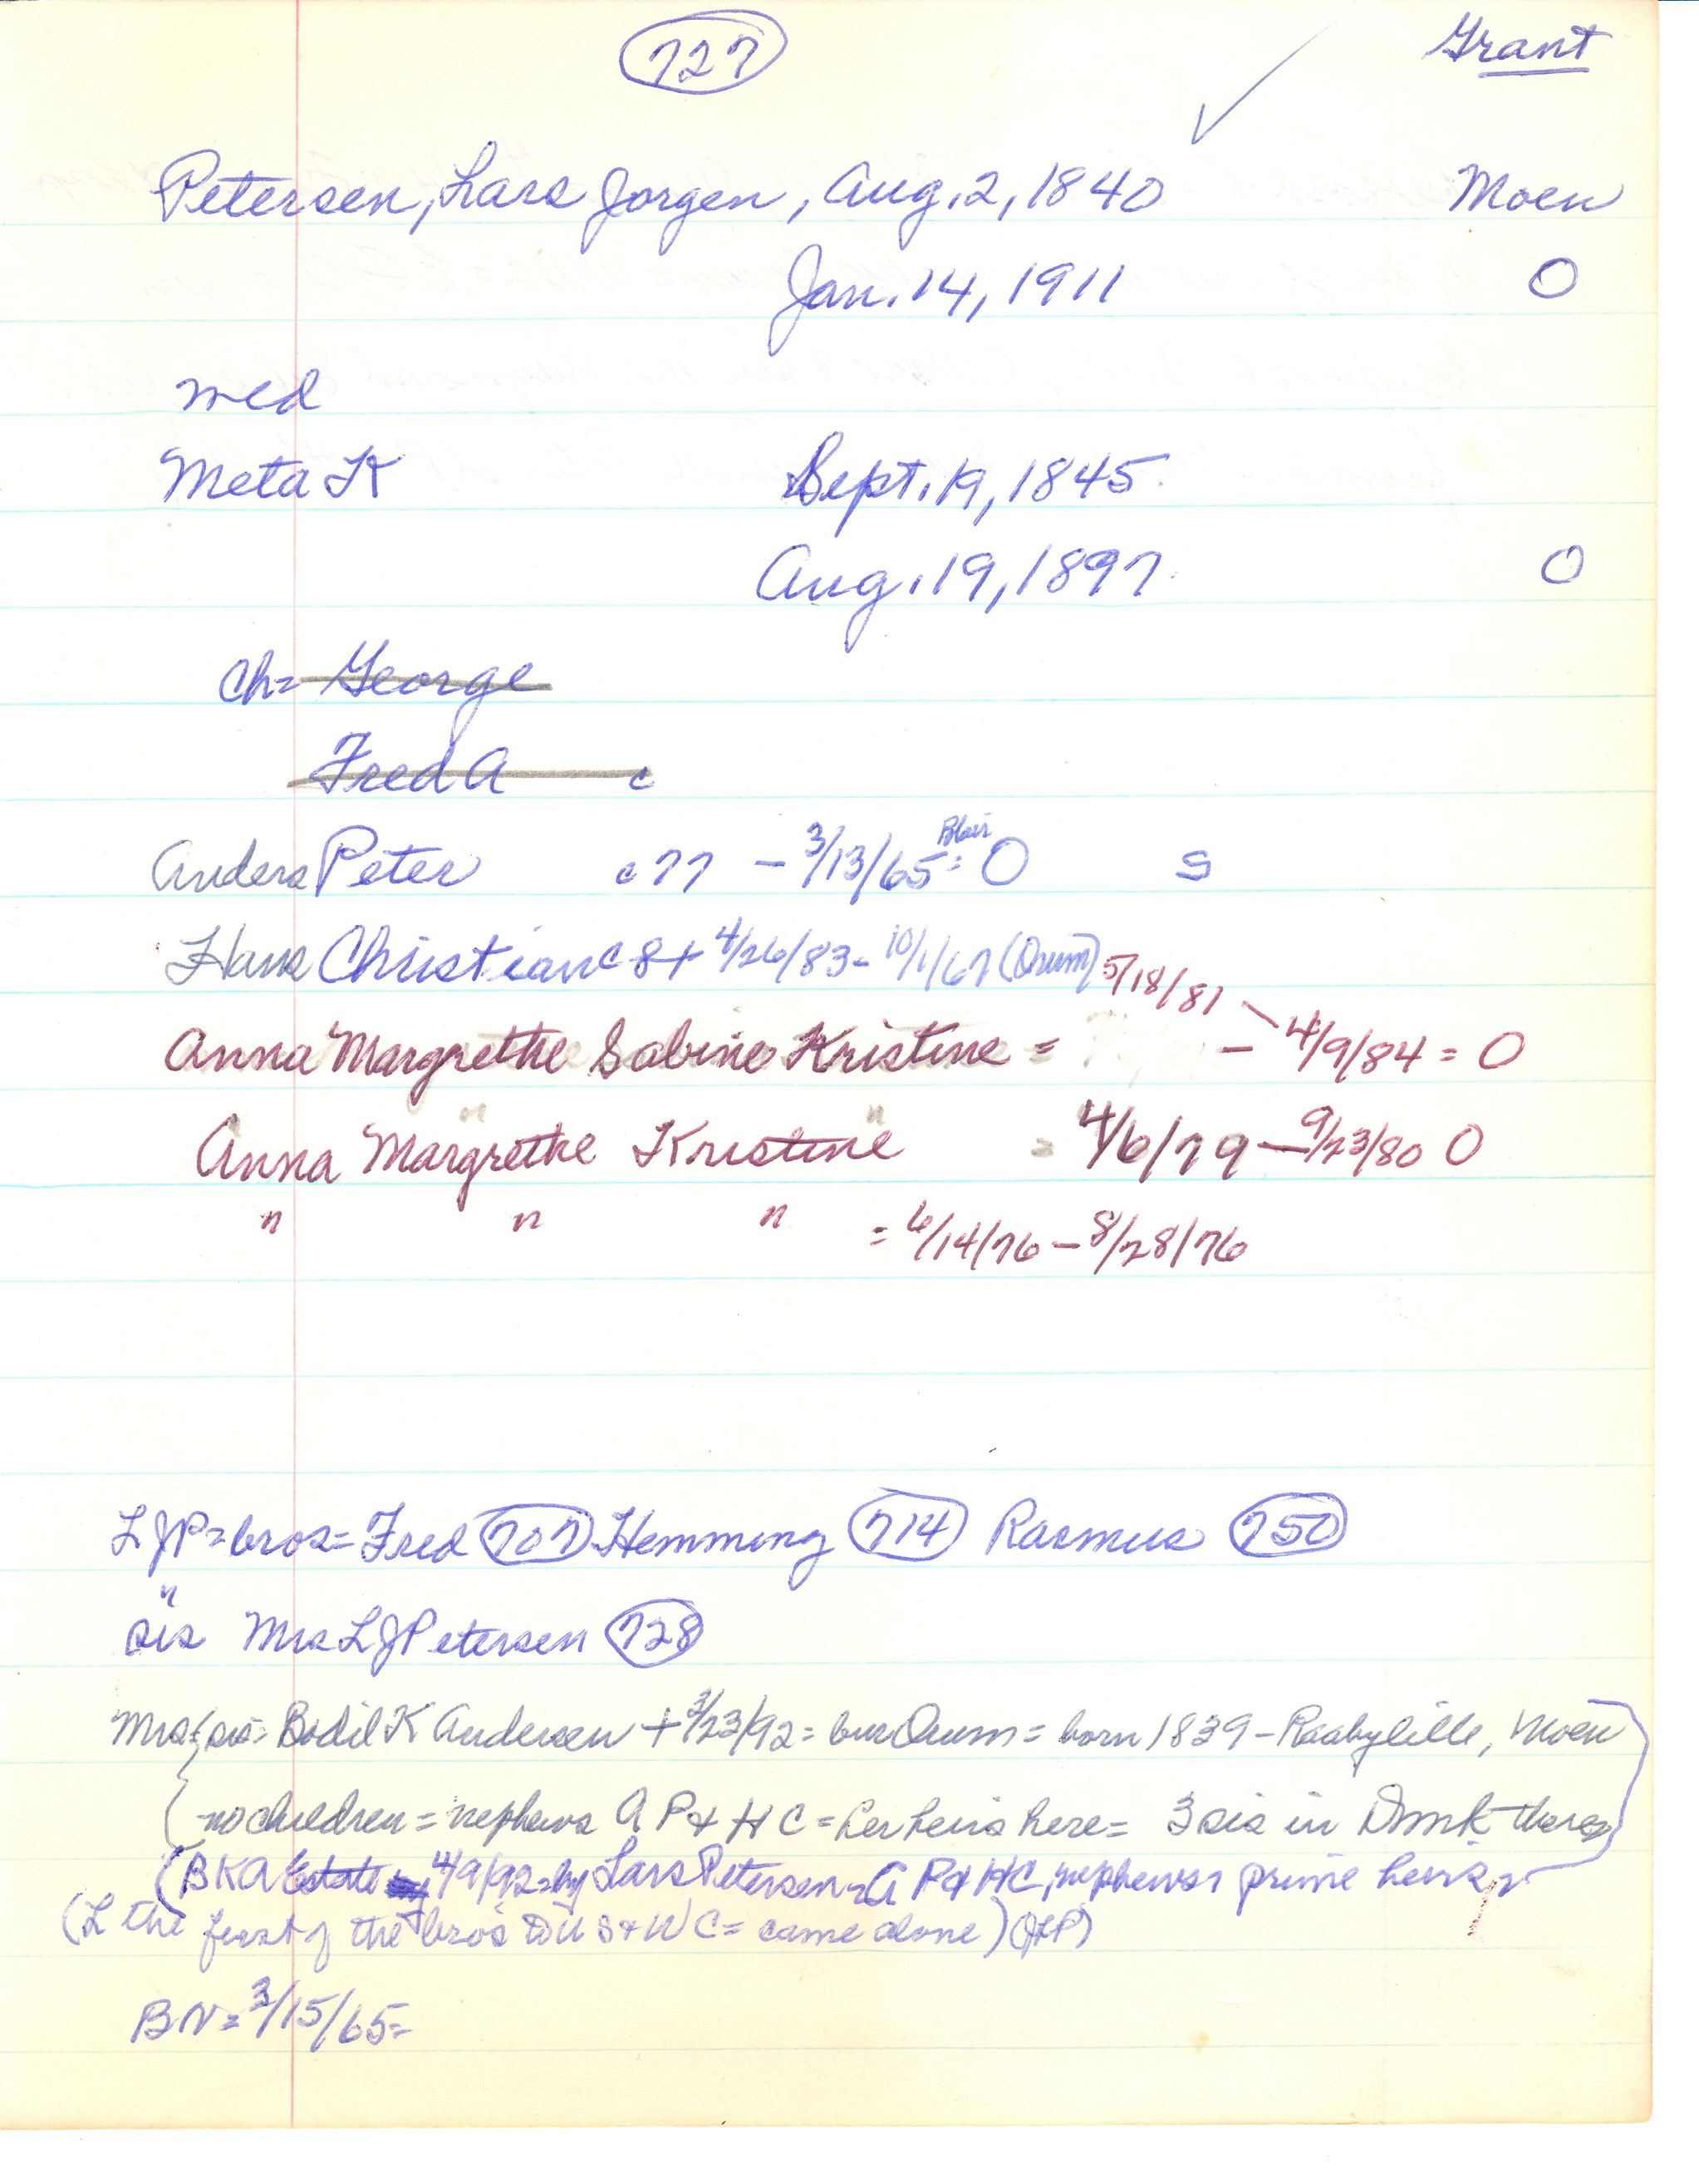 727
Grant
Petersen, Lars Jorgen, Aug. 2, 1840 Moen
Jan. 14, 1911 O
med
Meta K Sept. 19, 1845
Aug. 19, 1897 O
Ch= George
Fred A c
Anders Peter c 77 - 3/13/65 = O S
Blair
Hans Christian c 8+ 4/26/83 - 10/1/67 (Orum) 5/18/81
Anna Margrethe Sabine Kristine = - 4/9/84 = O
Anna Margrethe Kristine = 4/6/79 - 9/23/80 O
" " " = 6/14/76 - 8/28/76
LJP = bros = Fred 707 Hemming 714 Rasmus 750
"
sis Mrs LJ Petersen 728
Mrs sis = Bodil K Andersen + 3/23/92 = bur Orum = born 1839 - Raabylille, Moen
no children = nephews A P + H C = her heirs here = 3 sis in Dmk
(BKA Estate 4/9/92 = by Lars Petersen = A P + HC, nephews prime heirs
(L the first of the bros to U S + W C = came alone)
BN = 3/15/65 =